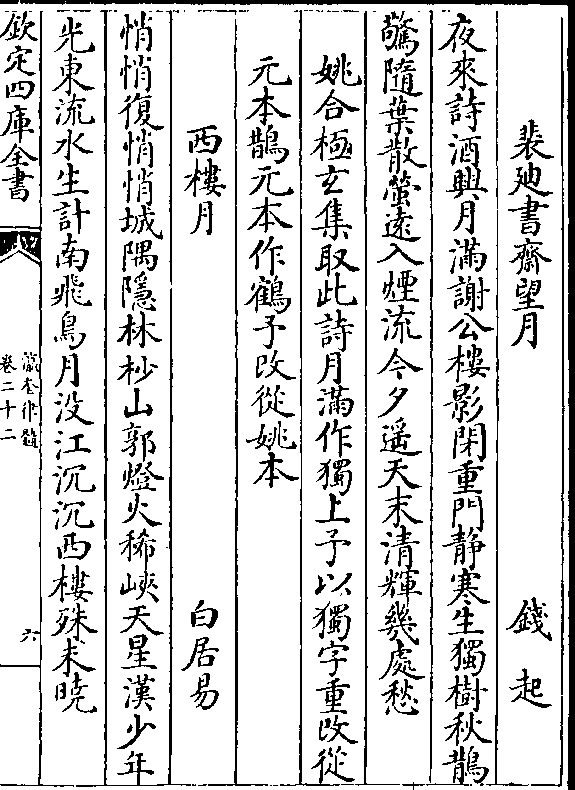 裴廸書齋望月　　　　　錢起
夜來詩酒興月滿謝公樓影閉重門静寒生獨樹秋鵲
驚隨葉散螢逺入煙流今夕遥天末清輝幾處愁
姚合極玄集取此詩月滿作獨上予以獨字重改從
元本鵲元本作鶴予改從姚本
西樓月　　　　　　　　白居易
悄悄復悄悄城隅隱林杪山郭燈火稀峽天星漢少年
光東流水生計南飛鳥月没江沉沉西樓殊未曉
欽定四庫全書
瀛奎律髓
卷二十二
六